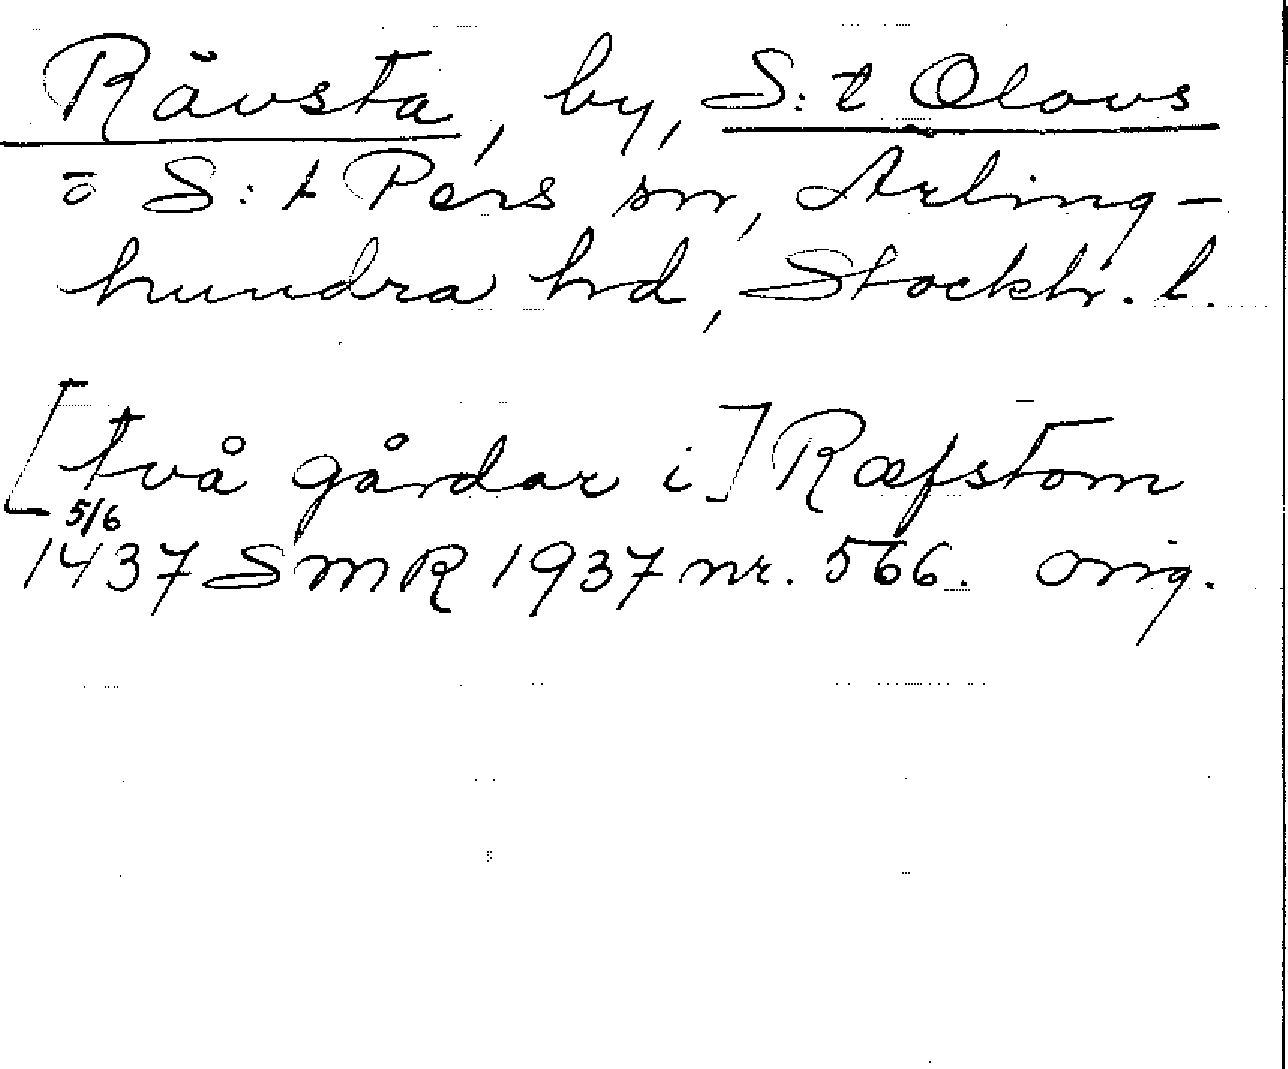 Rävsta, by, S:t Olovs
o S:t Pers sn, Ärling-
hundra hd, Stockh. l.
[två gårdar i] Ræfstom
5/6
1437 SMR 1937 nr. 566. orig.